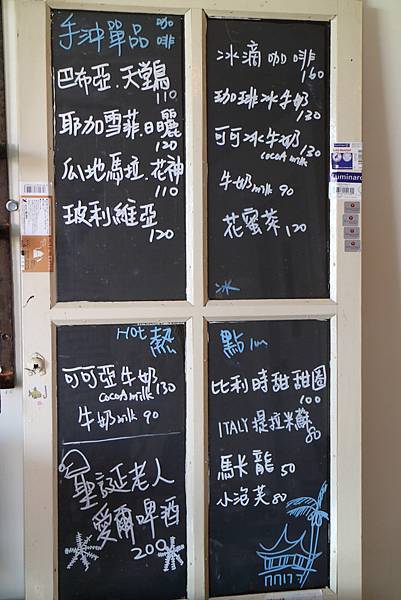 手沖單品咖啡
巴布亞.天堂鳥
110
耶加雪菲.日曬
120
瓜地馬拉.花神
110
玻利維亞
120
冰滴咖啡
160
咖啡冰牛奶
130
可可冰牛奶
130
cocoA milk
牛奶milk 90
花蜜茶 120
冰
HOT 熱
可可亞牛奶
130
cocoA milk
牛奶milk 90
聖誕老人
愛爾啤酒
200
點心
比利時甜甜圈
100
ITALY提拉米蘇
80
馬卡龍 50
小泡芙 80
Luminarc